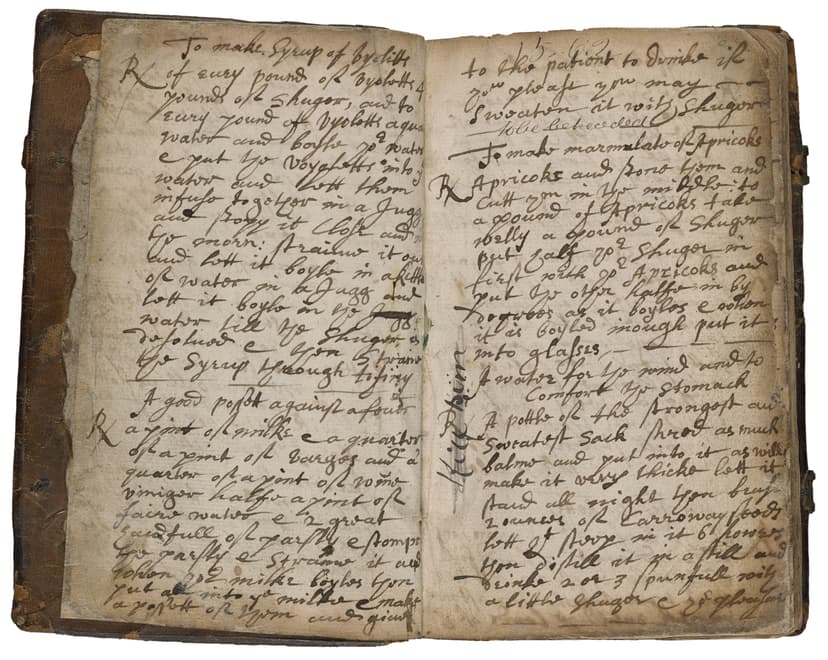 To make Syrup of Vyolitts
℞ of eury pound of Vyoletts 4
pounds of Shuger, and to
Eury pound of Vyoletts a qua
water and boyle yor water
& put the Voyoletts into y
water and lett them
infuse together in a Jugg
and stopp it Close and
the morn: straine it ou
and lett it boyle in a kittl
of water in a Jugg and
lett it boyle in the Jugg
water till the Shuger is
desolued & then Straine
the Syrup through tifiny
A good possett against a feuer
℞ a pint of milke & a quarter
of a pint of Varges and a
quarter of a pint of wine
viniger halfe a pint of
faire water & 2 great
handfull of parsly & stompe
the parsly & Straine it and
when yor milke boyles then
put all into ye milke & make
a possett of them and giue
to the patient to drinke if
you please you may
Sweaten it with Shuger
To make marmalate of Apricoks
℞ Apricoks and stone them and
Cutt ym in the middle: to
a pound of Apricoks take
welly a pound of Shuger
put halfe yor Shuger in
first with yor Apricoks and
put the other halfe in by
degrees as it boyles & when
it is boyled inough put it
into glasses
A water for the wind and to
Comfort the Stomack
℞ A pottle of the strongest an
Sweatest Sack shred as much
balme and put into it as will
make it very thicke lett it
stand all night then bruse
2 ounces of Carroway seeds
lett yt steep in it 6 howers
then distill it in a still and
drinke 2 or 3 spunfull with
a little Shuger & yor pleasur